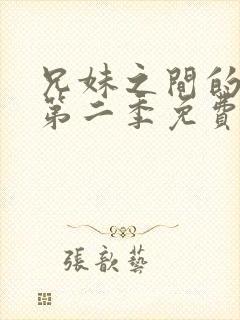 兄妹之間的
第二季免費
張歆藝